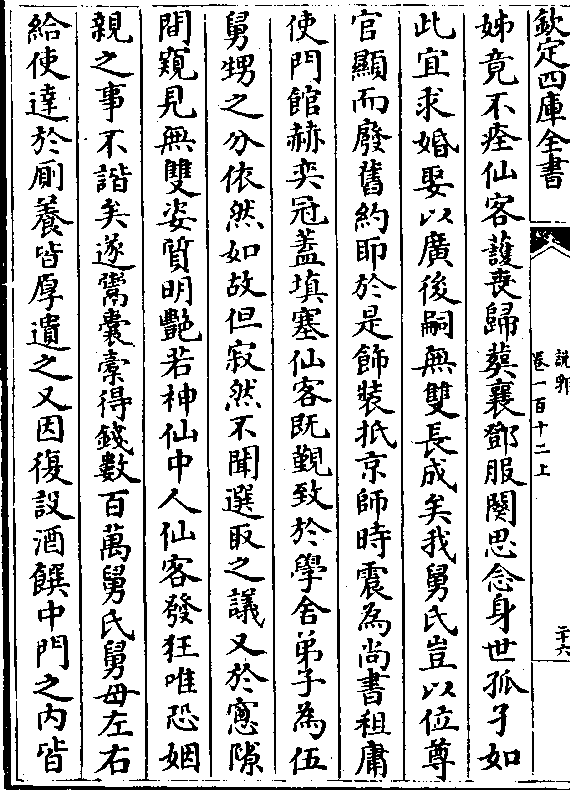 欽定四庫全書
說郛
卷一百十二上
二十六
姊竟不痊仙客護喪歸葬襄鄧服闋思念身世孤孑如
此宜求婚娶以廣後嗣無雙長成矣我舅氏豈以位尊
官顯而廢舊約耶於是飾裝抵京師時震為尚書租庸
使門館赫奕冠葢填塞仙客既覲致於學舍弟子為伍
舅甥之分依然如故但寂然不聞選取之議又於窻隙
間窺見無雙姿質明艷若神仙中人仙客發狂唯恐姻
親之事不諧矣遂鬻囊橐得錢數百萬舅氏舅母左右
給使達於厠養皆厚遺之又因復設酒饌中門之内皆